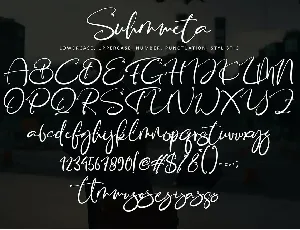 Suhommeta
LOWERCASE, UPPERCASE, NUMBER, PUNCTUATION, STYLISTIC
ABCDEFGHIJKLMN
OPQRSTUVWXYZ
abcdefghijklmnopqrstuvwxyz
1234567890!@#$%&()